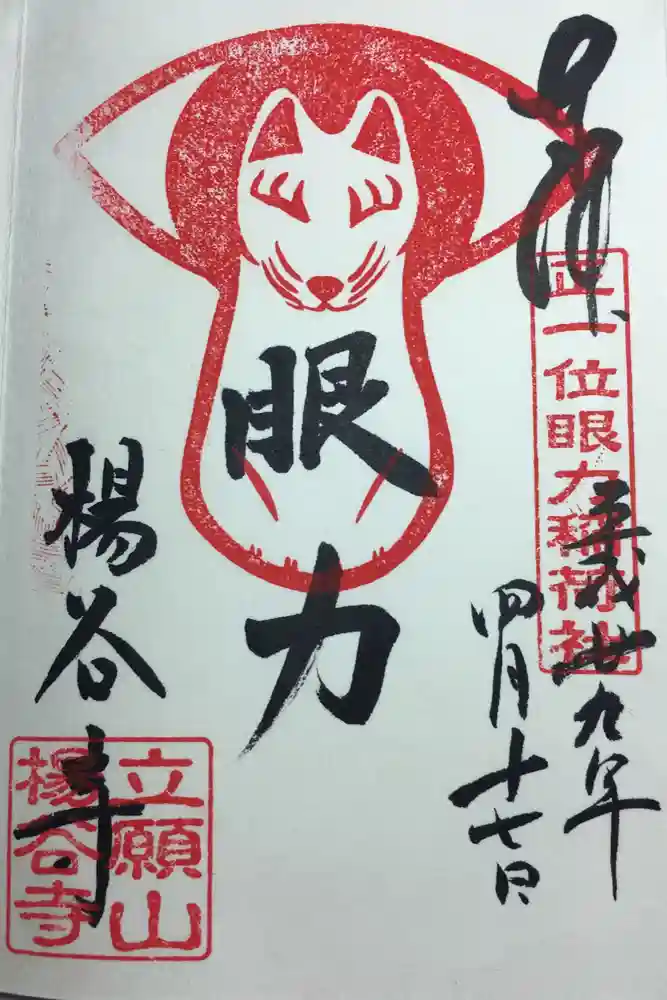 奉拝
正一位眼力稲荷社
平成廿九年
四月十七日
眼力
楊谷寺
立願山
楊谷寺